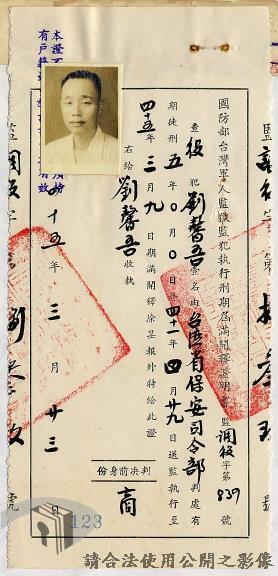 國防部台灣軍人監獄監犯執行刑期屆滿開釋證明書 監調役字第839號
查役犯劉馨吾壹名由台灣省保安司令部判處有
期徒刑五年0月0日 四十一年四月廿九日送監執行至
四十五年三月九日期滿開釋除呈報外特給此證
右給劉馨吾收執
判決前身份
商
四十五年三月廿三日
123
請合法使用公開之影像